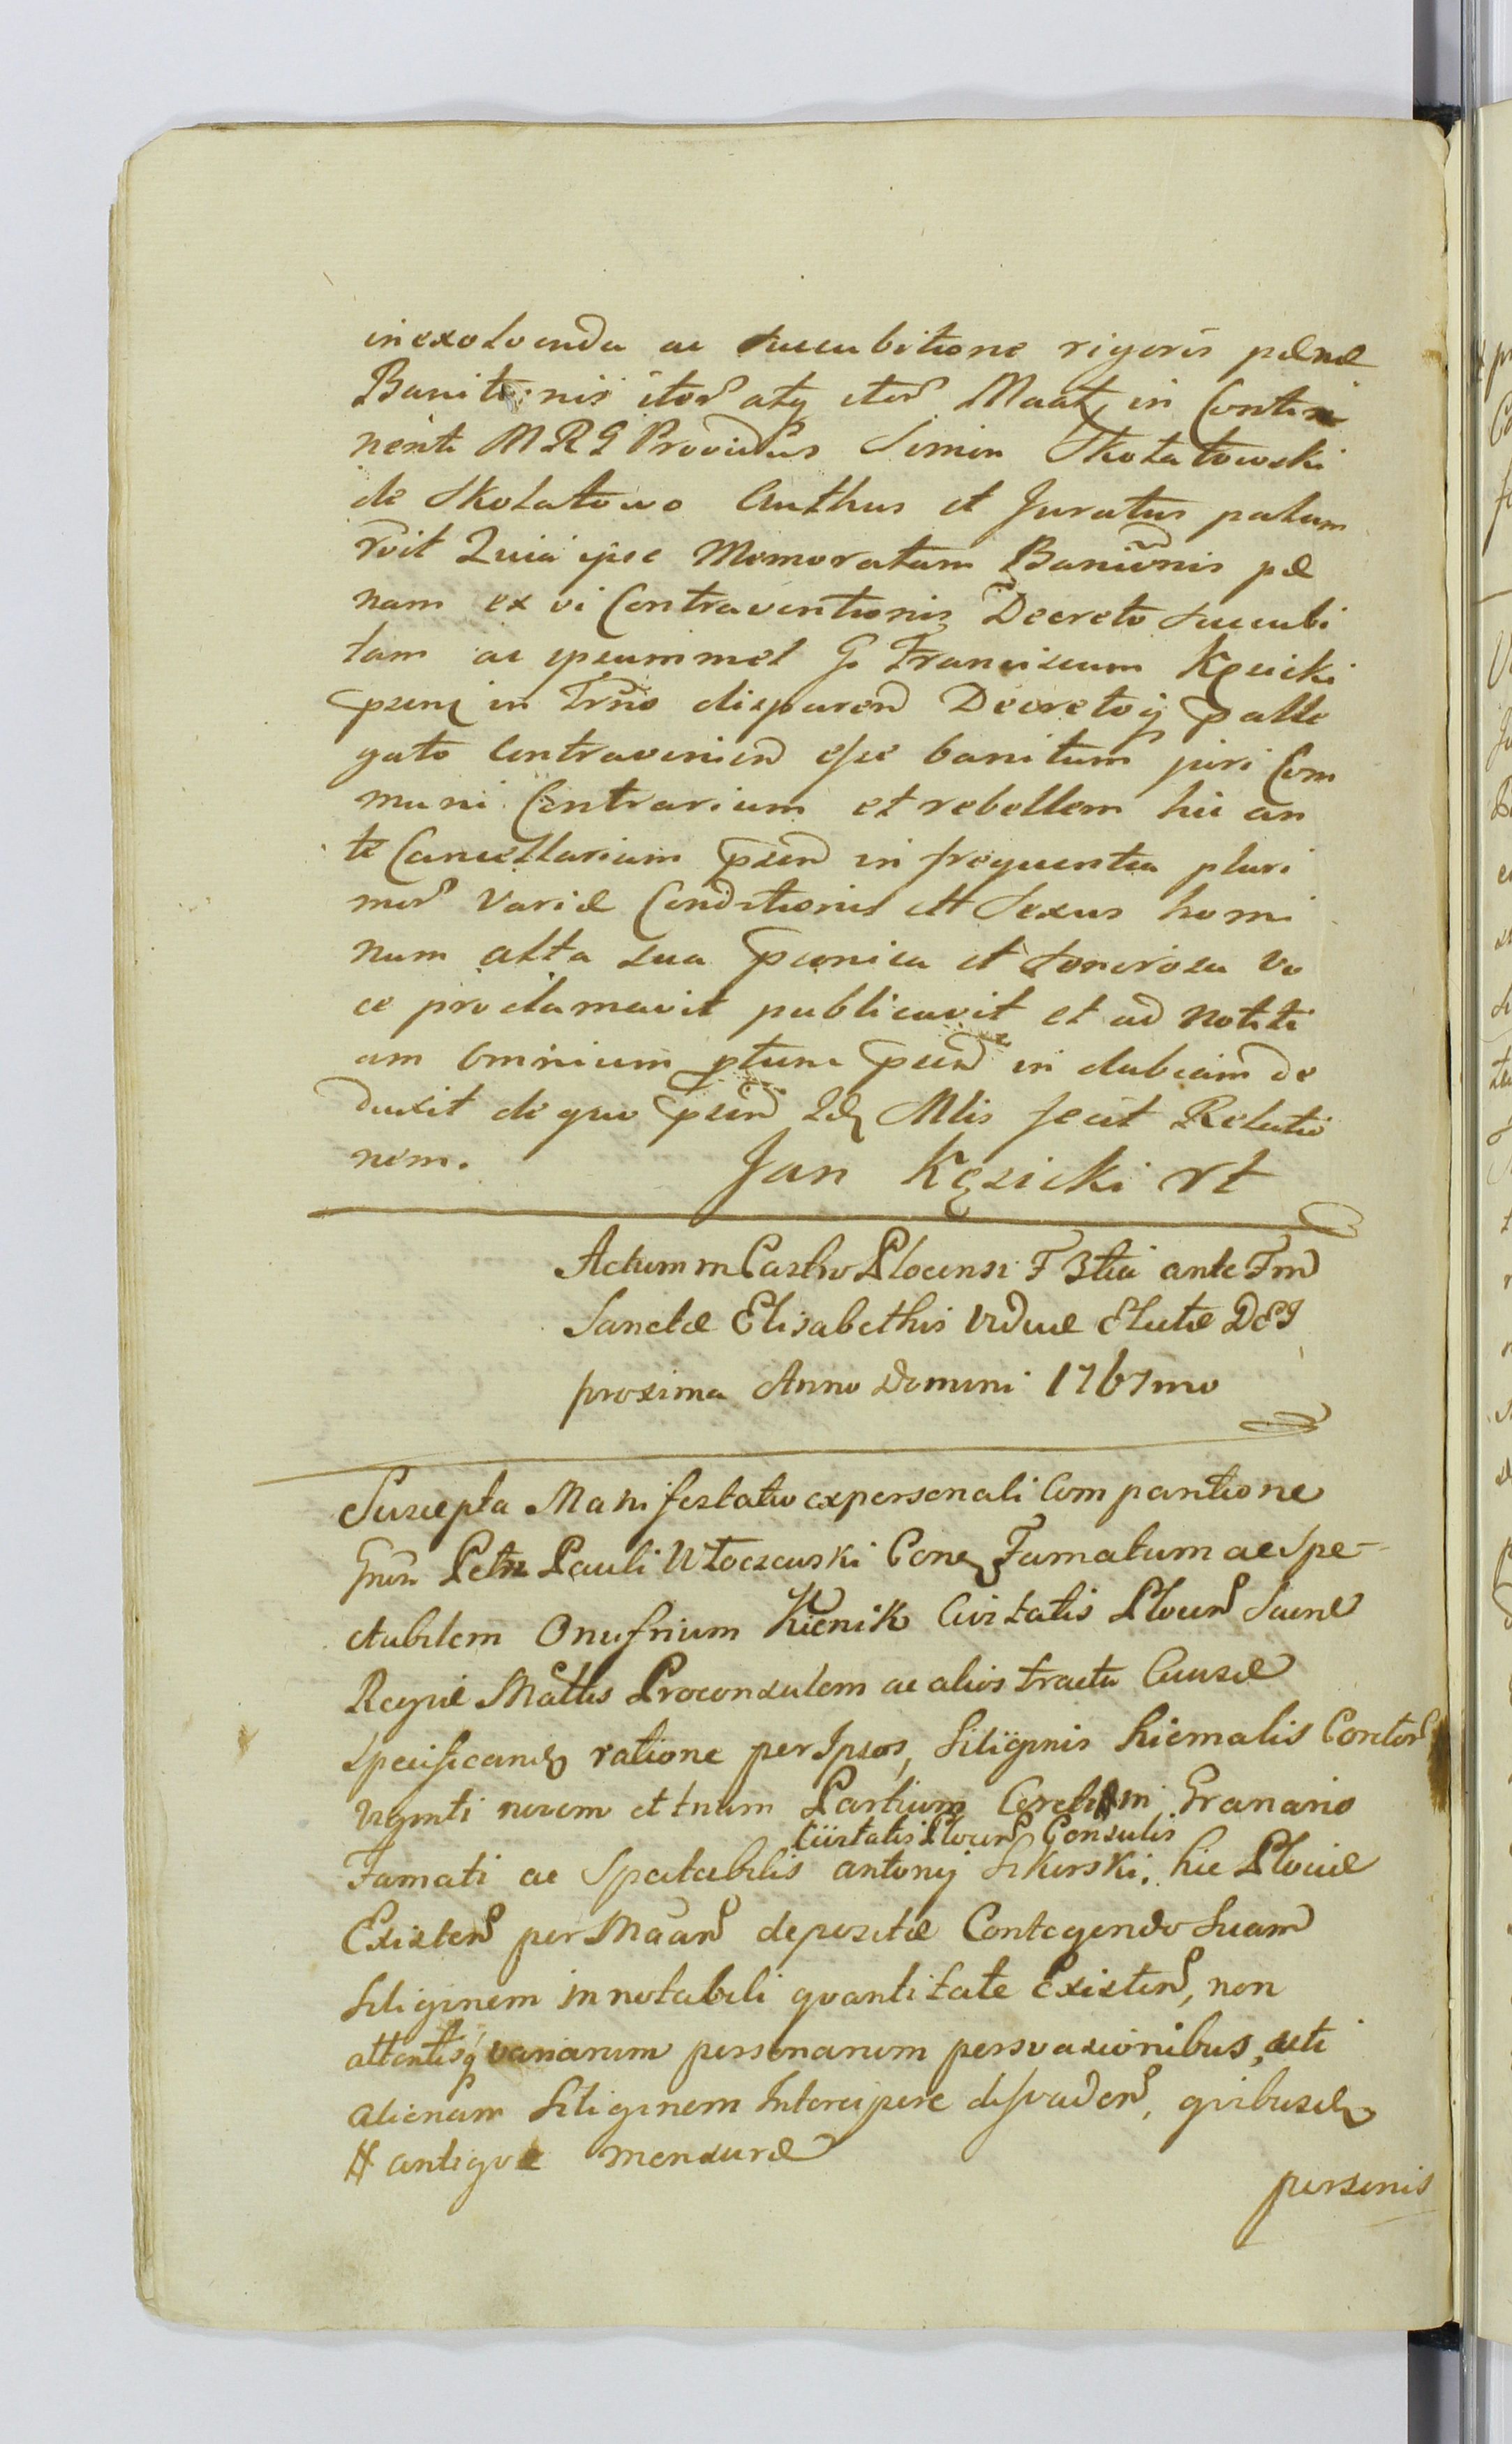 inexolvenda ac succubitione rigoris pænæ
Banitionis itor atq itor Maat, in Conti
nenti MRG Providus Simon Skołatowski
de Skołatowo Authus et Juratus palam
rdit Quia ipse Memoratam Banionis pæ
nam ex vi Contraventionis Decreto succubi
tam ac ipsummet G. Franciscum Kęsicki
psenę in Trno disparend Decretoq palle
gato Contravenien esse banitum juri Com
muni Contrarium et rebellem hic an
te Cancellariam psend in frequentia pluri
mor Variæ Conditionis ett Sexus homi
num alta sua pconica et sonorosa vo
ce proclamavit publicavit et ad notiti
am omnium ptune psend in dubiam de
duxit de quo psend Idę Mlis fecit Relatio
nem. Jan Kęsicki rt
Actum in Castro Plocensi F 3tia ante Fm
Sanctæ Elisabethis Viduæ Electæ DEI
proxima Anno Domini 1767mo
Suscepta Manifestatio ex personali Comparitione
Gnsi Petri Pauli Włoczewski Cone Famatum ac Spe-
ctabilem Onufrium Kienik Civitatis Plocen Sacræ
Regiæ Mattis Proconsulem ac alios tractu Causæ
specificandę ratione per Ipsos, Siliginis hiemalis Coretor
viginti novem et trium Partium Coreti # in Granario
Civitatis Plocen Consulis
Famati ac Spectabilis Antonij Sikorski, hic Plociæ
Existen per Maan depositæ Contegendo Suam
Siliginem in notabili quantitate Existen, non
attentisq variarum personarum persvasionibus, uti
alienam Siliginem Intercipere dissvaden, quibusdę
# antiquæ mensuræ
personis